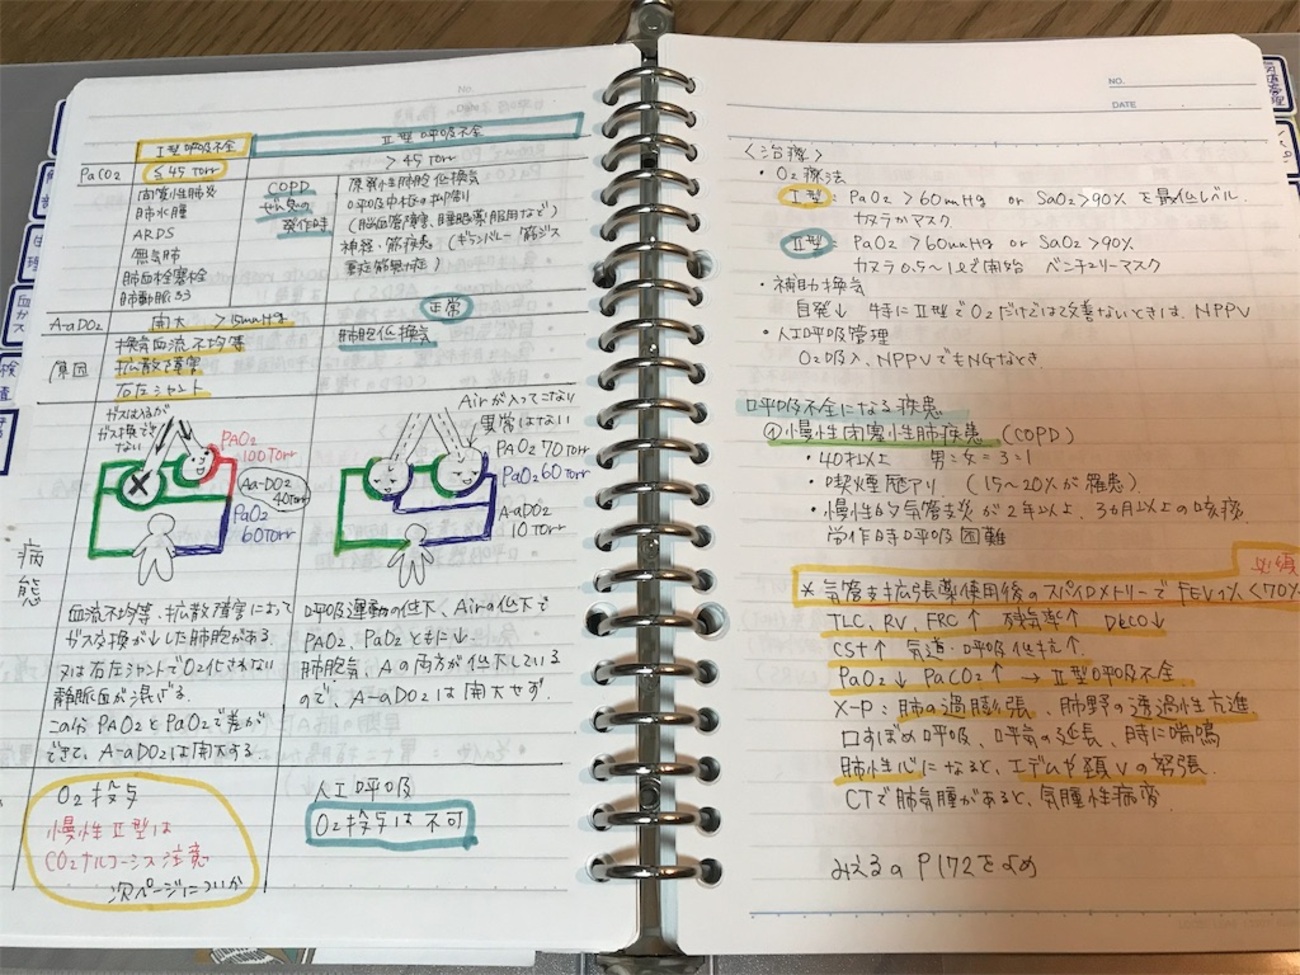 No.
Date
I型呼吸不全
II型呼吸不全
PaCO2
≦45 Torr
> 45 Torr
間質性肺炎
肺水腫
ARDS
無気肺
肺血栓塞栓
COPD
ぜん息の
発作時
原発性肺胞低換気
呼吸中枢の抑制
(脳血管障害、睡眠薬服用など)
神経・筋疾患 (ギランバレー 筋ジス
重症筋無力症)
A-aDO2
開大 >15mmHg
正常
原因
換気血流不均等
拡散障害
右左シャント
肺胞低換気
病態
ガスは入るが
ガス換できない
PAO2
100Torr
Aa-DO2
40Torr
PaO2
60Torr
Airが入ってこない
異常はない
PAO2 70Torr
PaO2 60Torr
A-aDO2
10Torr
血流不均等、拡散障害によって
ガス交換が↓した肺胞がある
又は右左シャントでO2化されない
静脈血が混ざる.
この分PAO2とPaO2で差が
できて、A-aDO2は開大する.
呼吸運動の低下、Airの低下で
PAO2、PaO2ともに↓.
肺胞気、Aの両方が低下している
ので、A-aDO2は開大せず.
O2投与
慢性II型は
CO2ナルコーシス注意
次ページについか
人工呼吸
O2投与は不可
NO.
DATE
<治療>
・O2療法
I型: PaO2>60mmHg or SaO2>90% を最低レベル.
カヌラかマスク
II型: PaO2>60mmHg or SaO2>90%
カヌラ0.5~1ℓで開始 ベンチュリーマスク
・補助換気
自発↓ 特にII型でO2だけでは改善ないときは、NPPV
・人工呼吸管理
O2吸入、NPPVでもNGなとき.
呼吸不全になる疾患
①慢性閉塞性肺疾患 (COPD)
・40才以上 男:女=3:1
・喫煙歴アリ. (15~20%が罹患)
・慢性的気管支炎が2年以上、3カ月以上の咳痰.
労作時呼吸困難
必須
*気管支拡張薬使用後のスパイロメトリーでFEV1%<70%
TLC、RV、FRC↑ 残気率↑ DLCO↓
CSt↑ 気道・呼吸抵抗↑.
PaO2↓ PaCO2↑ → II型呼吸不全.
X-P: 肺の過膨張、肺野の透過性亢進.
口すぼめ呼吸、呼気の延長、時に喘鳴
肺性心になると、エデムや頚Vの怒張.
CTで肺気腫があると、気腫性病変.
みえるのP172をよめ
気道管理
生理
血ガス
検査